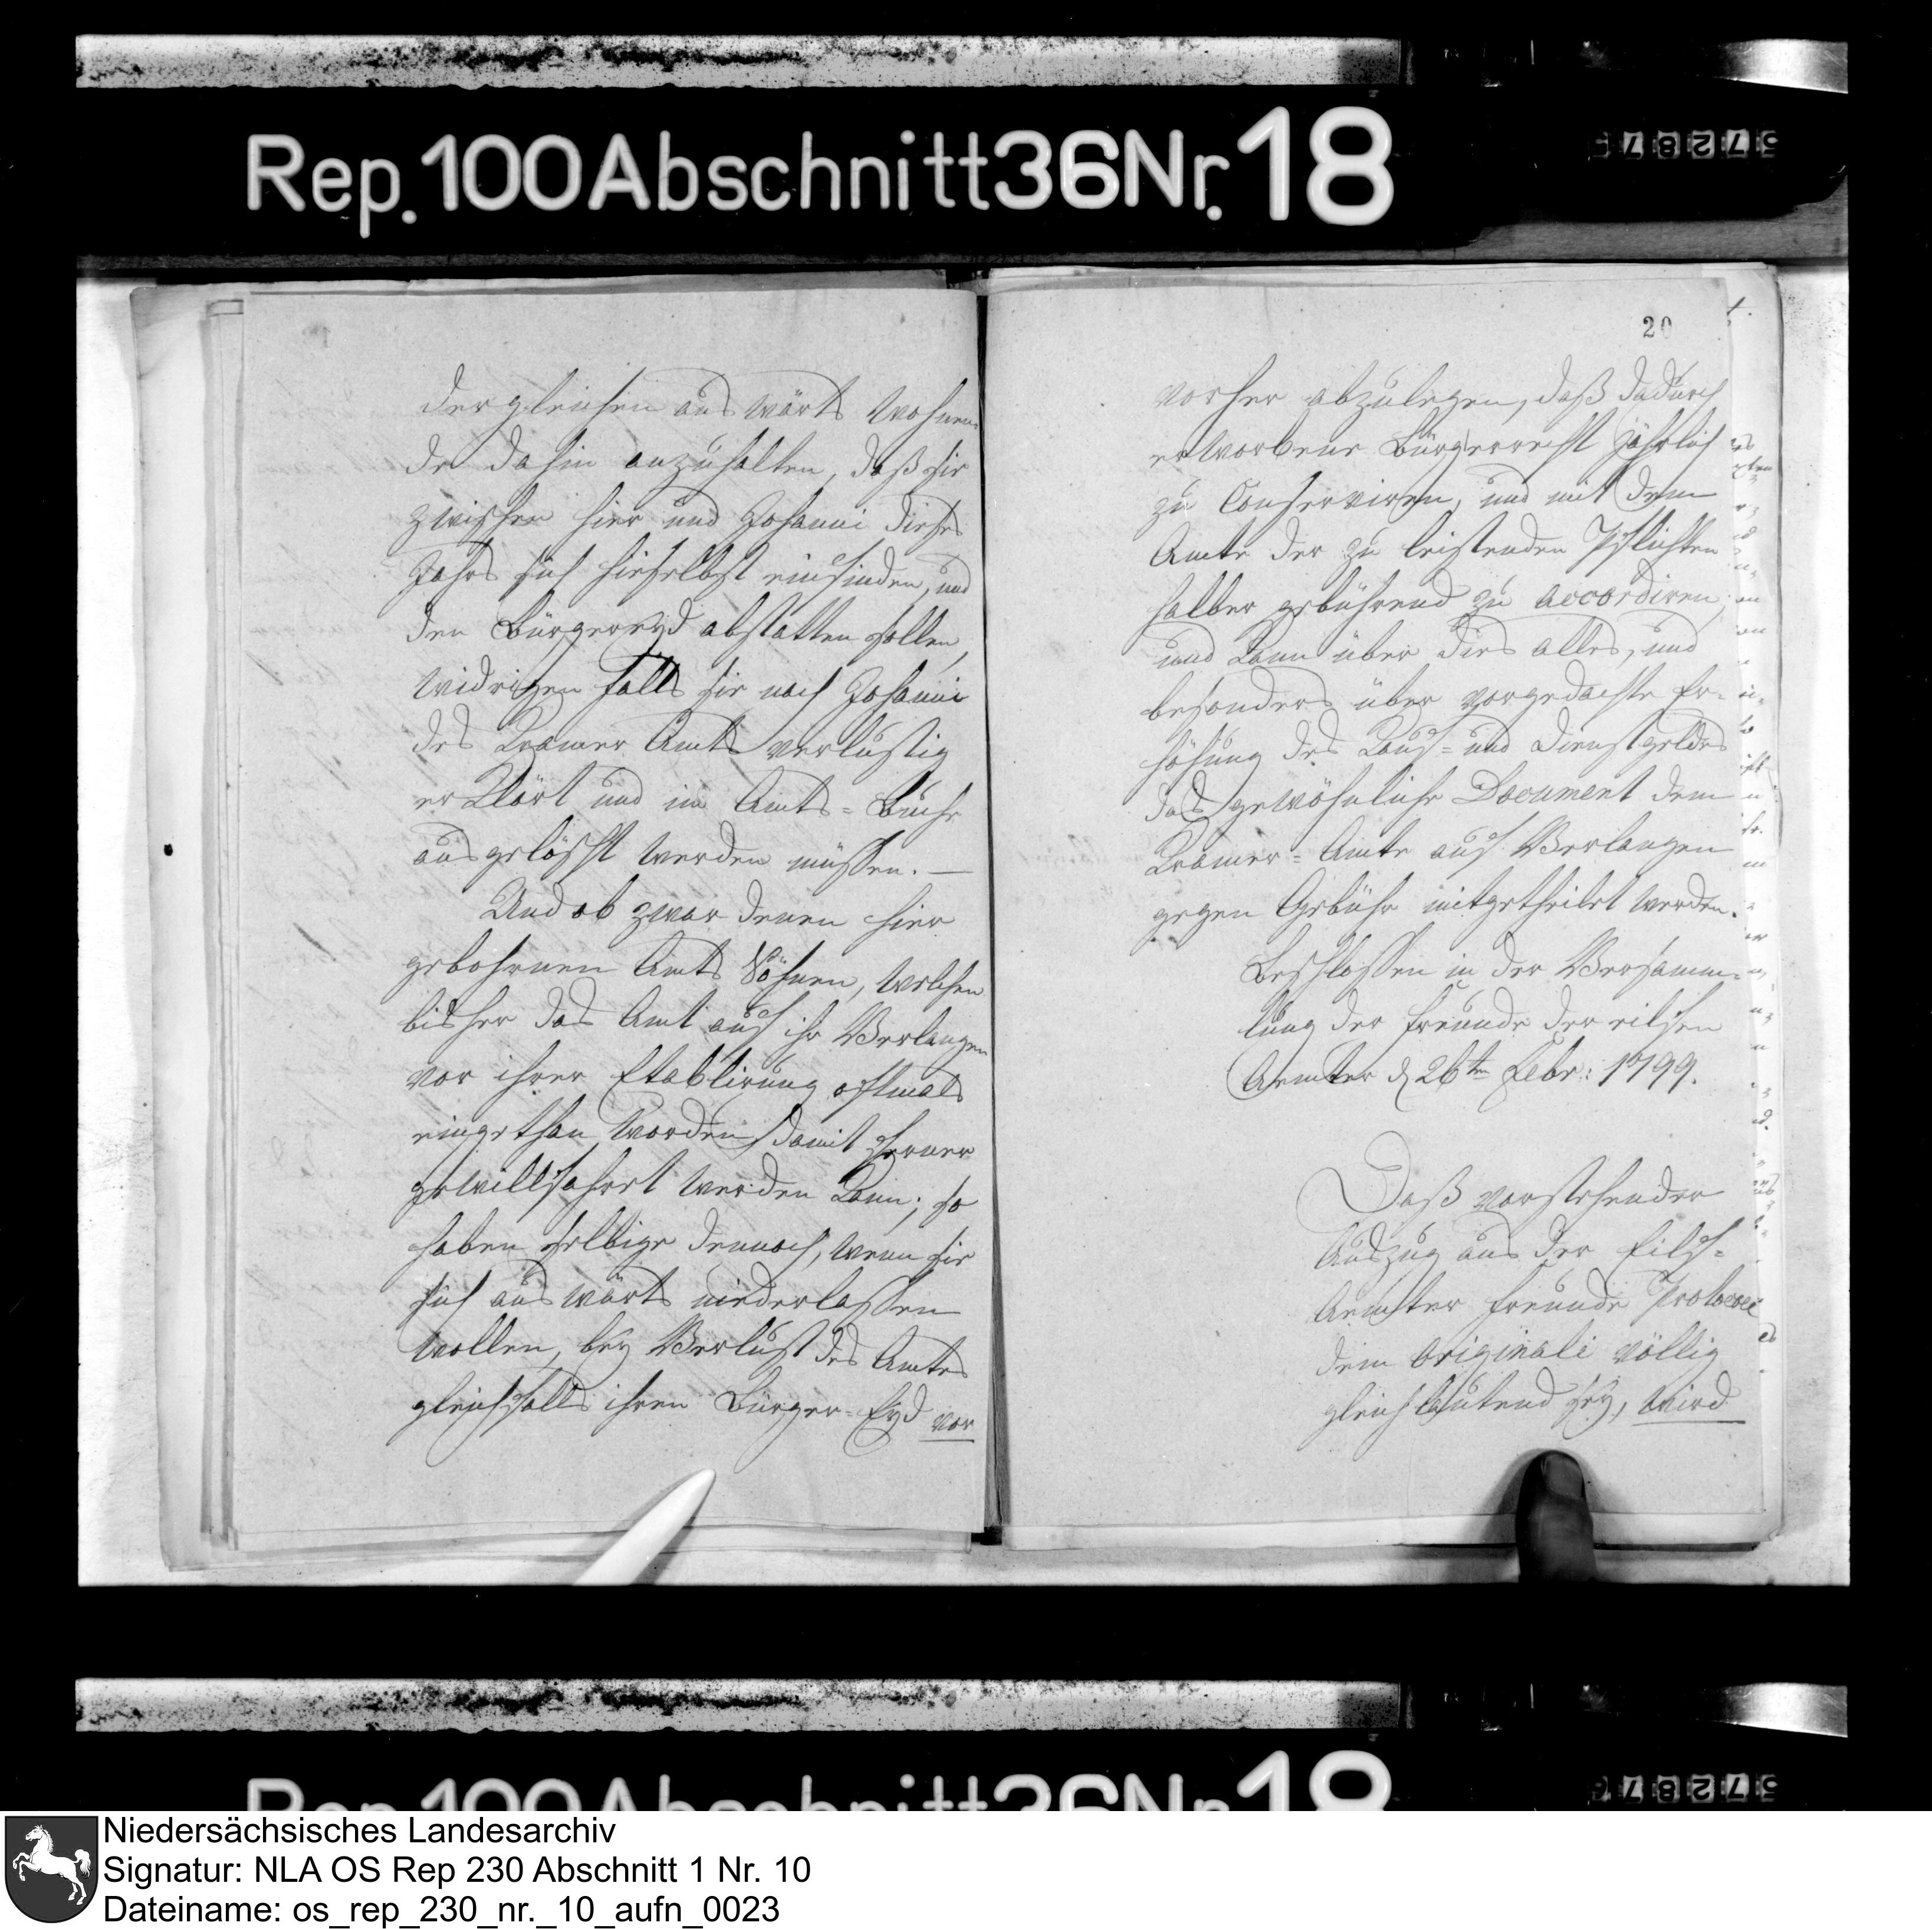 Rep. 100 Abschnitt 36 Nr. 18
dergleichen auswärts wohnen-
de dahin anzuhalten, daß sie
zwischen hier und Johanni dieses
Jahrs sich hieselbst einfinden, und
den Bürgereyd abstatten sollen,
widrigen falls sie nach Johanni
des Kramer Amts verlustig
erklärt und im Amts-Buche
ausgelöscht werden müssen. —
Und ob zwar denen hier
gebohrnen Amts Söhnen, welchen
bisher das Amt auf ihr Verlangen
vor ihrer Etablirung oftmals
eingethan worden, damit ferner
gewillfahrt werden kann; so
haben selbige dennoch, wenn sie
sich auswärts niederlassen
wollen, bey Verlust des Amtes
gleichfalls ihren Bürger-Eyd vor
20
vorher abzulegen, daß dadurch
erworbene Bürgerrecht jährlich
zu Conserviren, und mit dem
Amte der zu leistenden Pflichten
halber gebührend zu accordiren,
und kann über dies alles, und
besonders über vorgedachte Er-
höhung des Lauf- und Dienstgeldes
das gewöhnliche Document dem
Kramer-Amte auf Verlangen
gegen Gebühr mitgetheilet werden.
Beschlossen in der Versamm-
lung der Freunde der eilfen
Aemter d 26ten Febr: 1799.
Daß vorstehender
Auszug aus der Eilf-
Aemter Freunde Protocol
dem Originali völlig
gleichlautend sey, wird
Rep. 100 Abschnitt 36 Nr. 18
Niedersächsisches Landesarchiv
Signatur: NLA OS Rep 230 Abschnitt 1 Nr. 10
Dateiname: os_rep_230_nr._10_aufn_0023